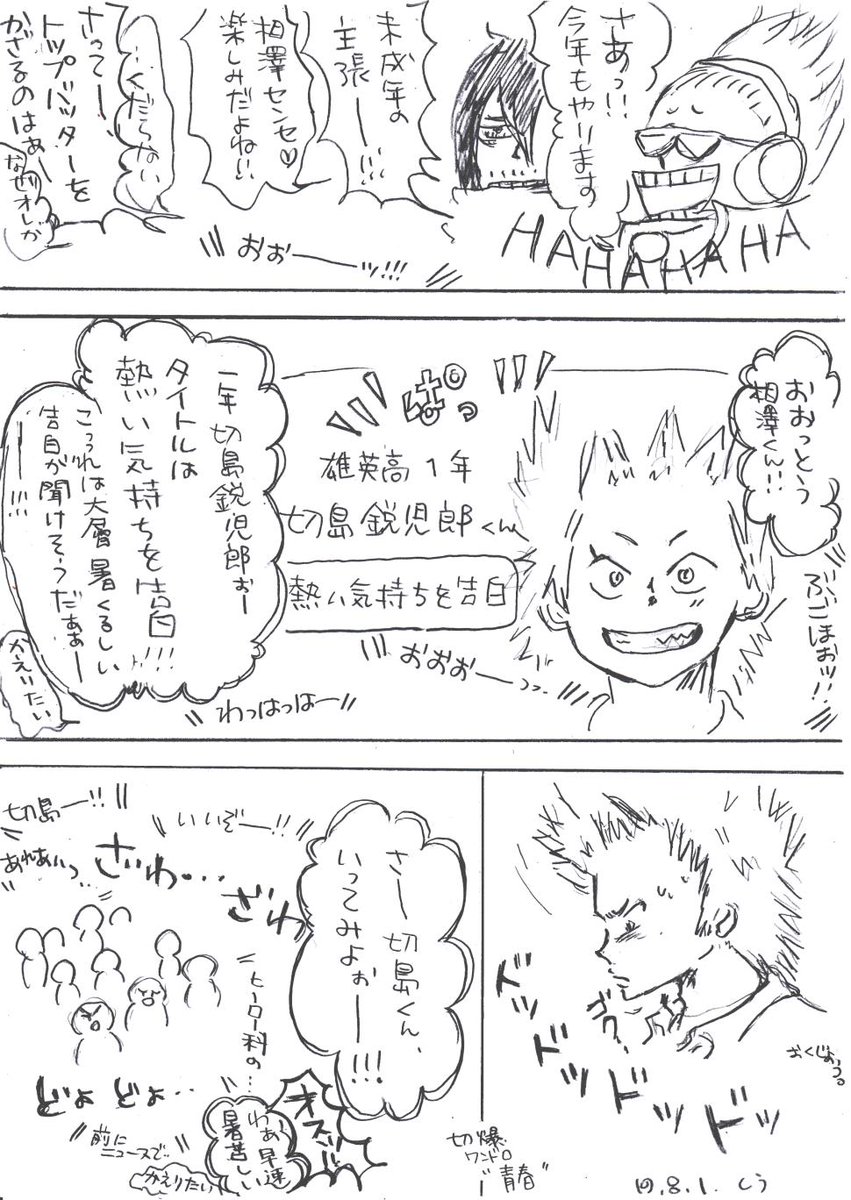 さあっ!!
今年もやります
未成年の
主張ー!!!
相澤センセ♡
楽しみだよね!!
…くだらない
さってー、
トップバッターを
かざるのはぁー
なぜオレが
HAHAHAHAHA
おぉーーッ!!!
おおっとぅ
相澤くん!!
ぶごほぉッ!!
ぱぁっ
雄英高1年
切島鋭児郎くん
熱い気持ちを告白
一年切島鋭児郎ぉー
タイトルは
熱い気持ちを告白!!!
こっれは大層暑くるしい
告白が聞けそうだぁぁー
ー!!!
かえりたい
おおおー
わっはっはー
ゴクッ
ドッドッドッドッドッ
おくじょう。
さー切島くん、
いってみよぉー!!!
オスッ!!
わぁ早速
暑苦しい
切島ー!!
いいぞー!!
あれあいつ…
ざわ…
ざわ
ヒーロー科の…
どよどよ…
前に
ニュースで…
かえりたい
切爆
ワンドロ
"青春"
19.8.1.しう